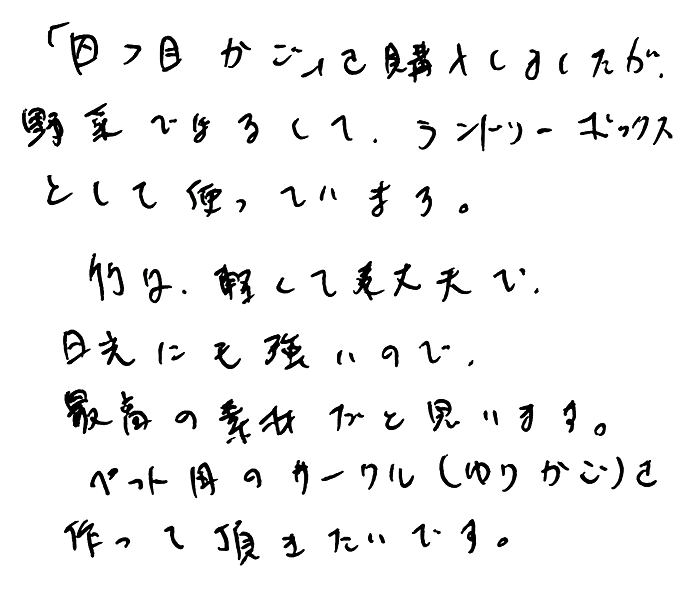 「四つ目かご」を購入しましたが、
野菜ではなくて、ランドリーボックス
として使っています。
竹は、軽くて丈夫で、
日光にも強いので、
最高の素材だと思います。
ペット用のサークル(ゆりかご)を
作って頂きたいです。